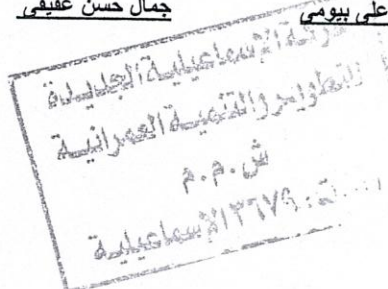 على بيومى
جمال حسن عفيفى
الإسماعيلية الجديدة
للتطوير والتنمية العمرانية
ش.م.م
٣٦٧٩ الإسماعيلية